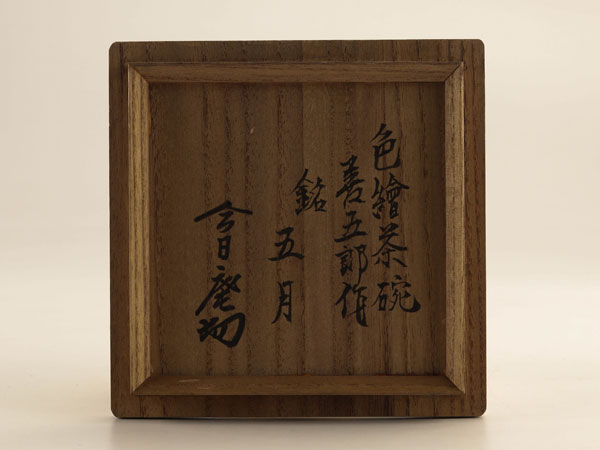 色繪茶碗
善五郎作
銘
五月
今日庵